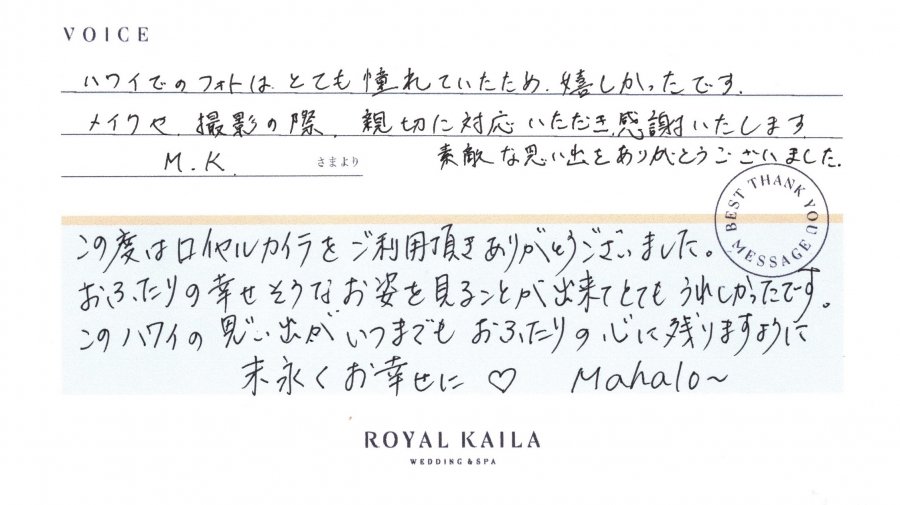 VOICE
ハワイでのフォトは とても 憧れていたため、嬉しかったです.
メイクや 撮影の際、親切に対応いただき、感謝いたします
素敵な思い出をありがとうございました.
M.K. さまより
BEST THANK YOU MESSAGE
この度はロイヤルカイラをご利用頂きありがとうございました。
おふたりの幸せそうなお姿を見ることが出来てとてもうれしかったです。
このハワイの思い出がいつまでもおふたりの心に残りますように
末永くお幸せに ♡ Mahalo～
ROYAL KAILA
WEDDING & SPA